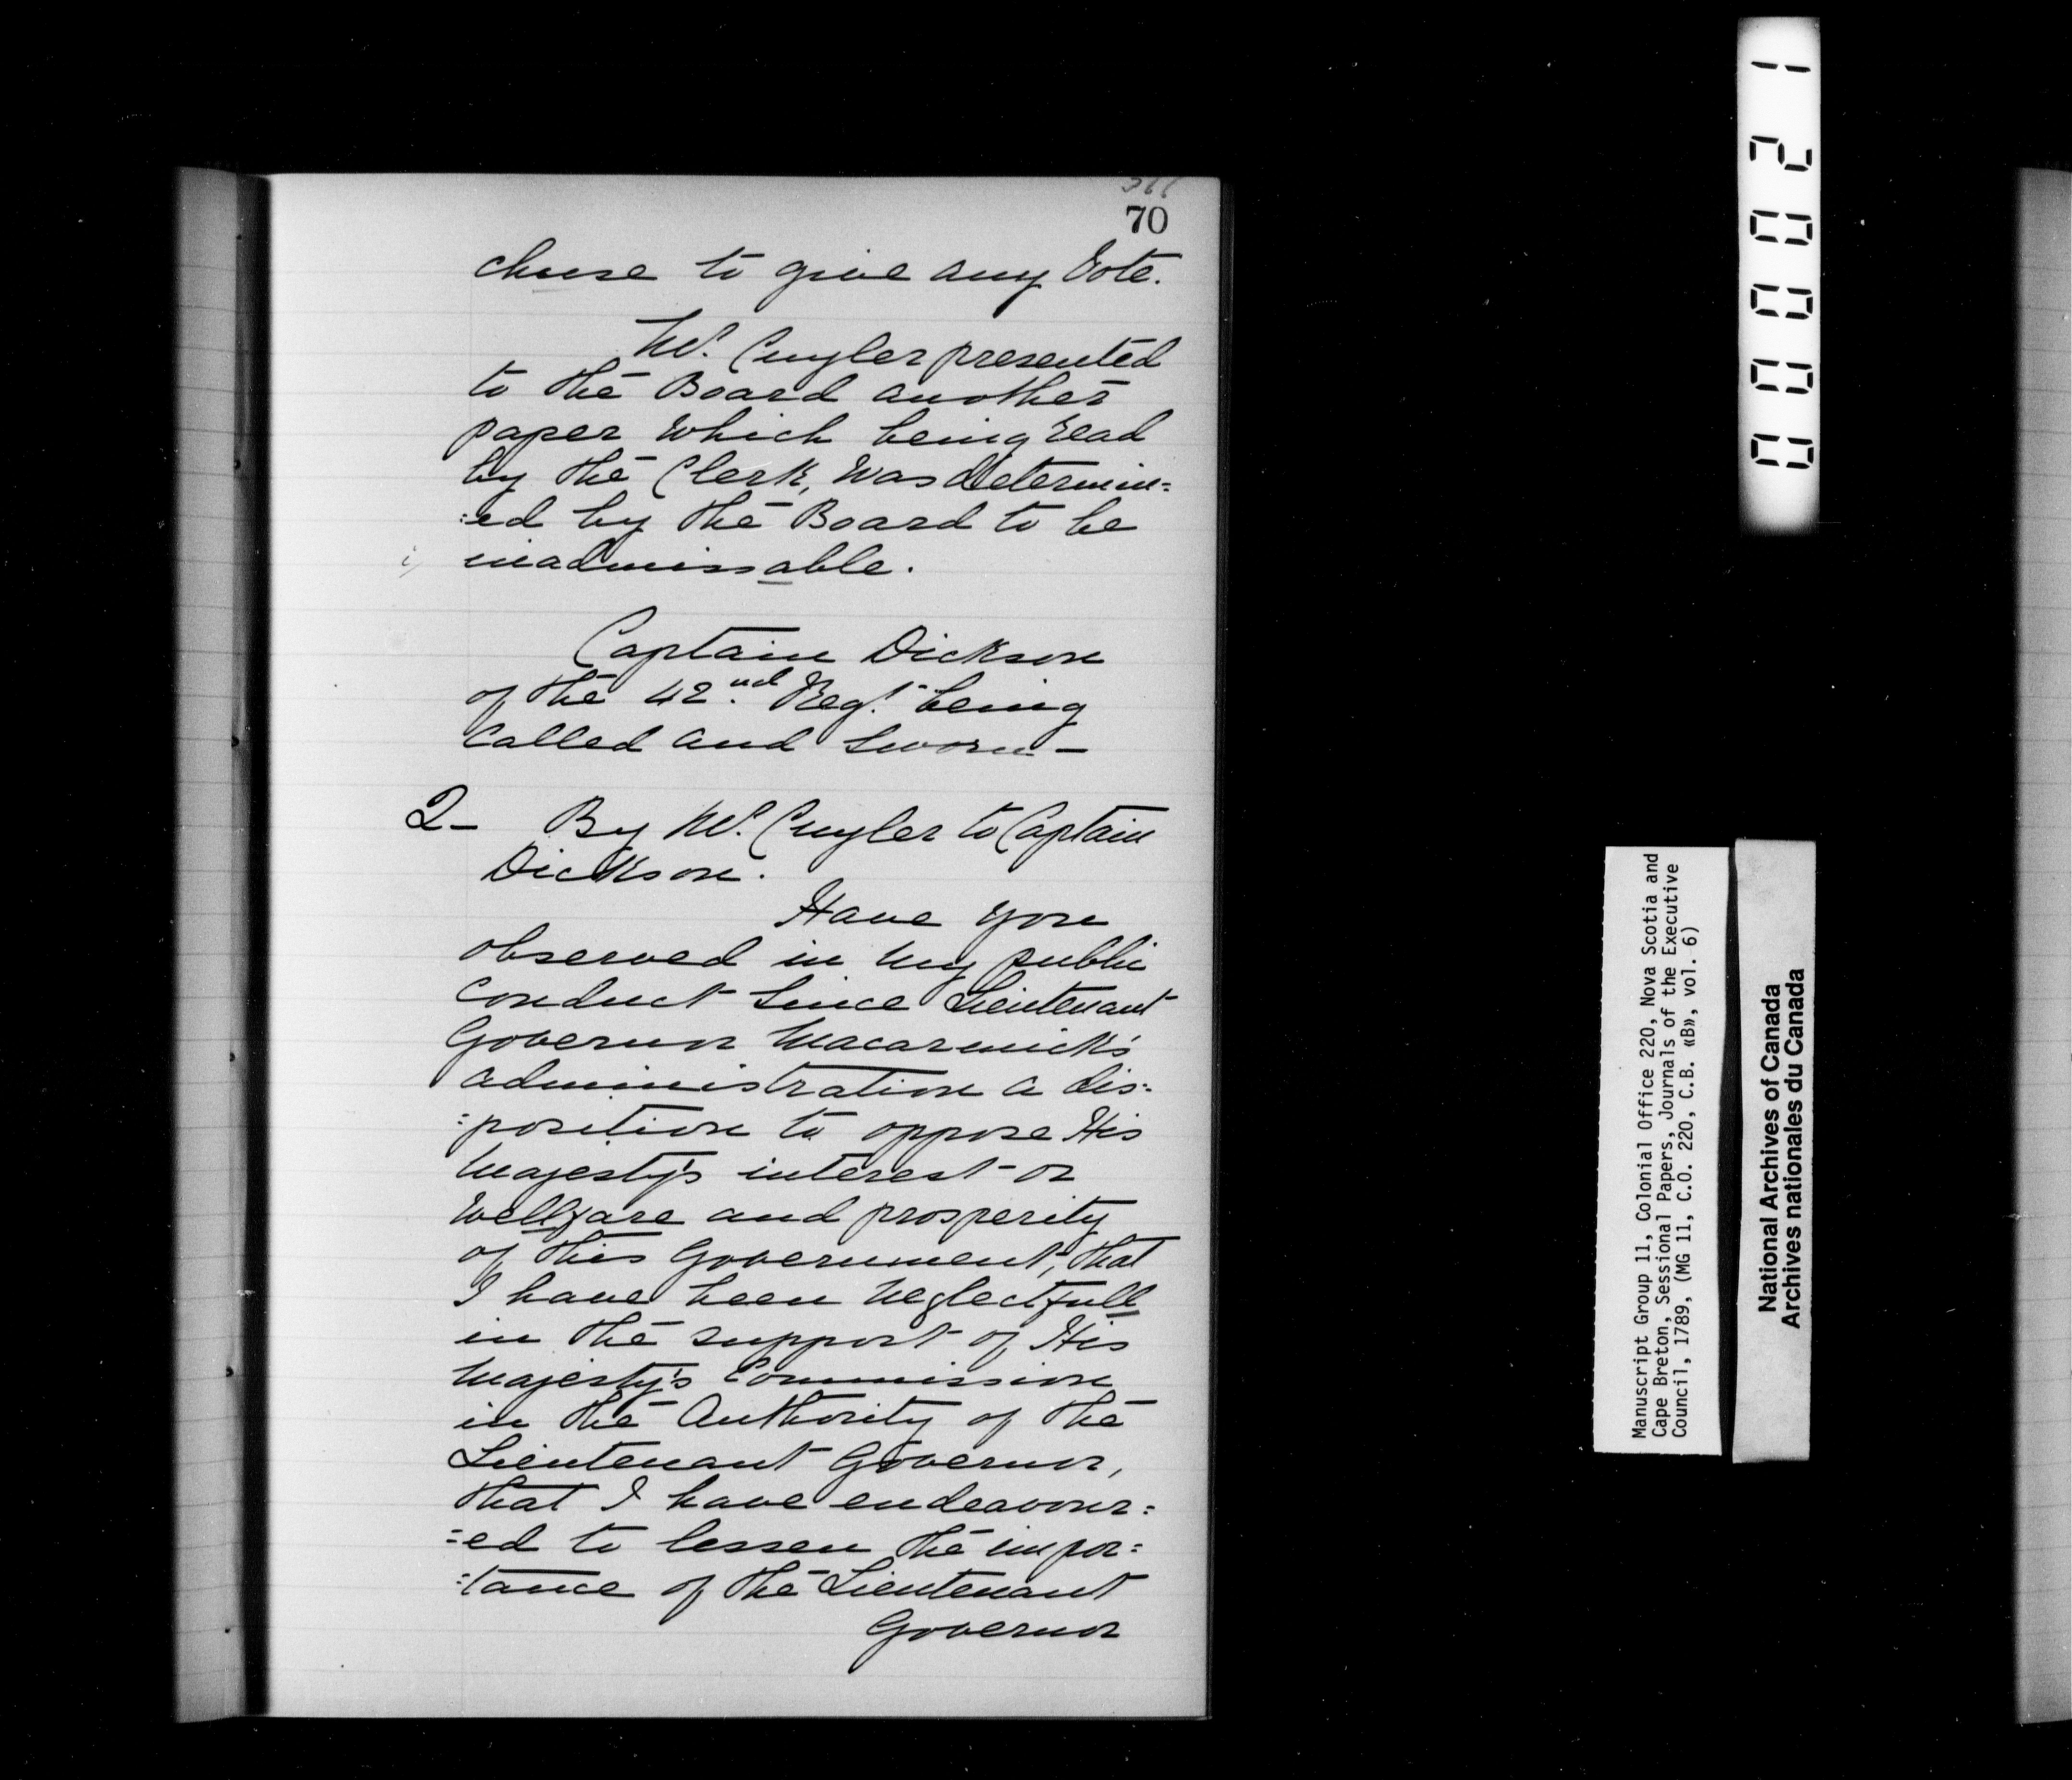 70
chuse to give any Vote.
Mr. Cuyler presented
to the Board another
paper which being read
by the Clerk, was determin=
=ed by the Board to be
inadmissable.
Captain Dickson
of the 42nd. Regt. being
called and sworn—
Q— By Mr. Cuyler to Captain
Dickson.
Have you
observed in my public
conduct since Lieutenant
Governor Macarmick's
administration a dis=
=position to oppose His
Majesty's interest or
Wellfare and prosperity
of this Government, that
I have been neglectfull
in the support of His
Majesty's Commission
in the Authority of the
Lieutenant Governor,
that I have endeavour=
=ed to lessen the impor=
=tance of the Lieutenant
Governor
000021
Manuscript Group 11, Colonial Office 220, Nova Scotia and
Cape Breton, Sessional Papers, Journals of the Executive
Council, 1789, (MG 11, C.O. 220, C.B. «B», vol. 6)
National Archives of Canada
Archives nationales du Canada